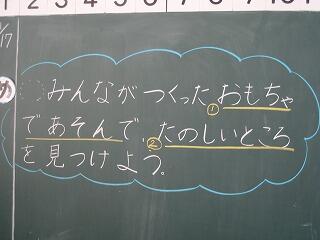 1 2 3 4 5 6 7 8 9 10 11
/17
め
みんながつくった①おもちゃ
であそんで、②たのしいところ
を見つけよう。